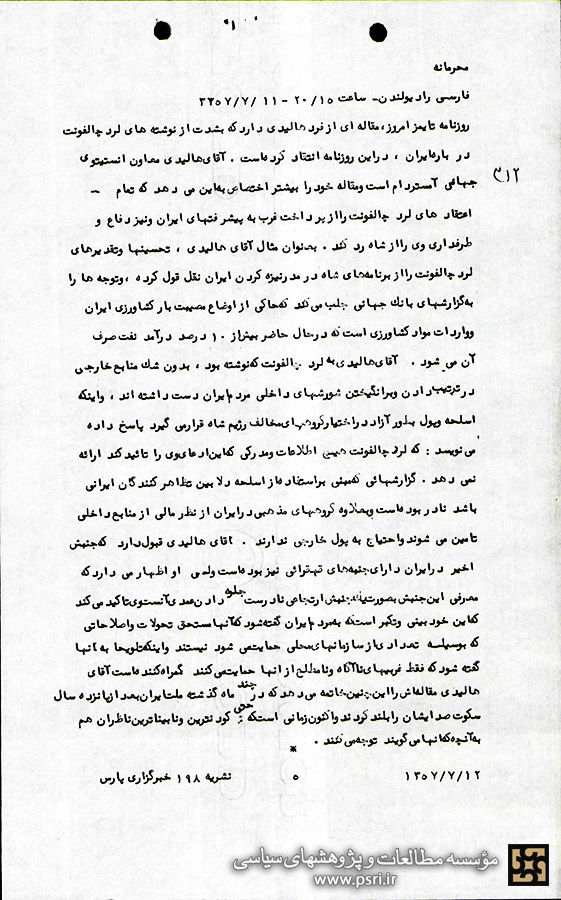 محرمانه
فارسی رادیولندن - ساعت ۲۰/۱۵ - ۱۱ /۷/ ۲۲۵۷
روزنامه تایمز امروز، مقاله ای از فرد هالیدی دارد که بشدت از نوشته های لرد چالفونت
در باره ایران ، در این روزنامه انتقاد کرده است . آقای هالیدی معاون انستیتوی
۳۱۲
جهانی آمستردام است و مقاله خود را بیشتر اختصاص به این می دهد که تمام -
اعتقاد های لرد چالفونت را از پرداخت غرب به پیشرفتهای ایران و نیز دفاع و
طرفداری وی را از شاه رد کند . بعنوان مثال آقای هالیدی ، تحسینها و تقدیرهای
لرد چالفونت را از برنامه های شاه در مدرنیزه کردن ایران نقل قول کرده ، و توجه ها را
به گزارشهای بانک جهانی جلب می کند که حاکی از اوضاع مصیبت بار کشاورزی ایران
و واردات مواد کشاورزی است که در حال حاضر بیش از ۱۰ درصد درآمد نفت صرف
آن می شود . آقای هالیدی به لرد چالفونت که نوشته بود ، بدون شك منابع خارجی
در ترتیب دادن و برانگیختن شورشهای داخلی مردم ایران دست داشته اند ، و اینکه
اسلحه و پول بطور آزاد در اختیار گروههای مخالف رژیم شاه قرار می گیرد پاسخ داده
می نویسد : که لرد چالفونت هیچ اطلاعات و مدرکی که این ادعای وی را تائید کند ارائه
نمی دهد . گزارشهائی که مبنی بر استفاده از اسلحه در بین تظاهر کنندگان ایرانی
باشد نادر بوده است و بعلاوه گروههای مذهبی در ایران از نظر مالی از منابع داخلی
تامین می شوند و احتیاج به پول خارجی ندارند . آقای هالیدی قبول دارد که جنبش
اخیر در ایران دارای جنبه های قهقرائی نیز بوده است ولی او اظهار می دارد که
معرفی این جنبش بصورت یک جنبش ارتجاعی نادرست جلوه دادن عمدی آنست وی تاکید می کند
که این خود بینی و تکبر است که به مردم ایران گفته شود که آنها مستحق تحولات و اصلاحاتی
که بوسیله تعدادی از سازمانهای محلی حمایت می شود نیستند و اینکه تلویحا به آنها
گفته شود که فقط غربیهای ناآگاه و نامطلع از آنها حمایت می کنند گمراه کننده است آقای
هالیدی مقاله اش را این چنین خاتمه می دهد که در چند ماه گذشته ملت ایران بعد از پانزده سال
سکوت صدایشان را بلند کردند و اکنون زمانی است که حتی کودن ترین و نابیناترین ناظران هم
به آنچه که آنها می گویند توجه می کنند .
*
۱۳۵۷/۷/۱۲ ۵ نشریه ۱۹۸ خبرگزاری پارس
مؤسسه مطالعات و پژوهشهای سیاسی
www.psri.ir